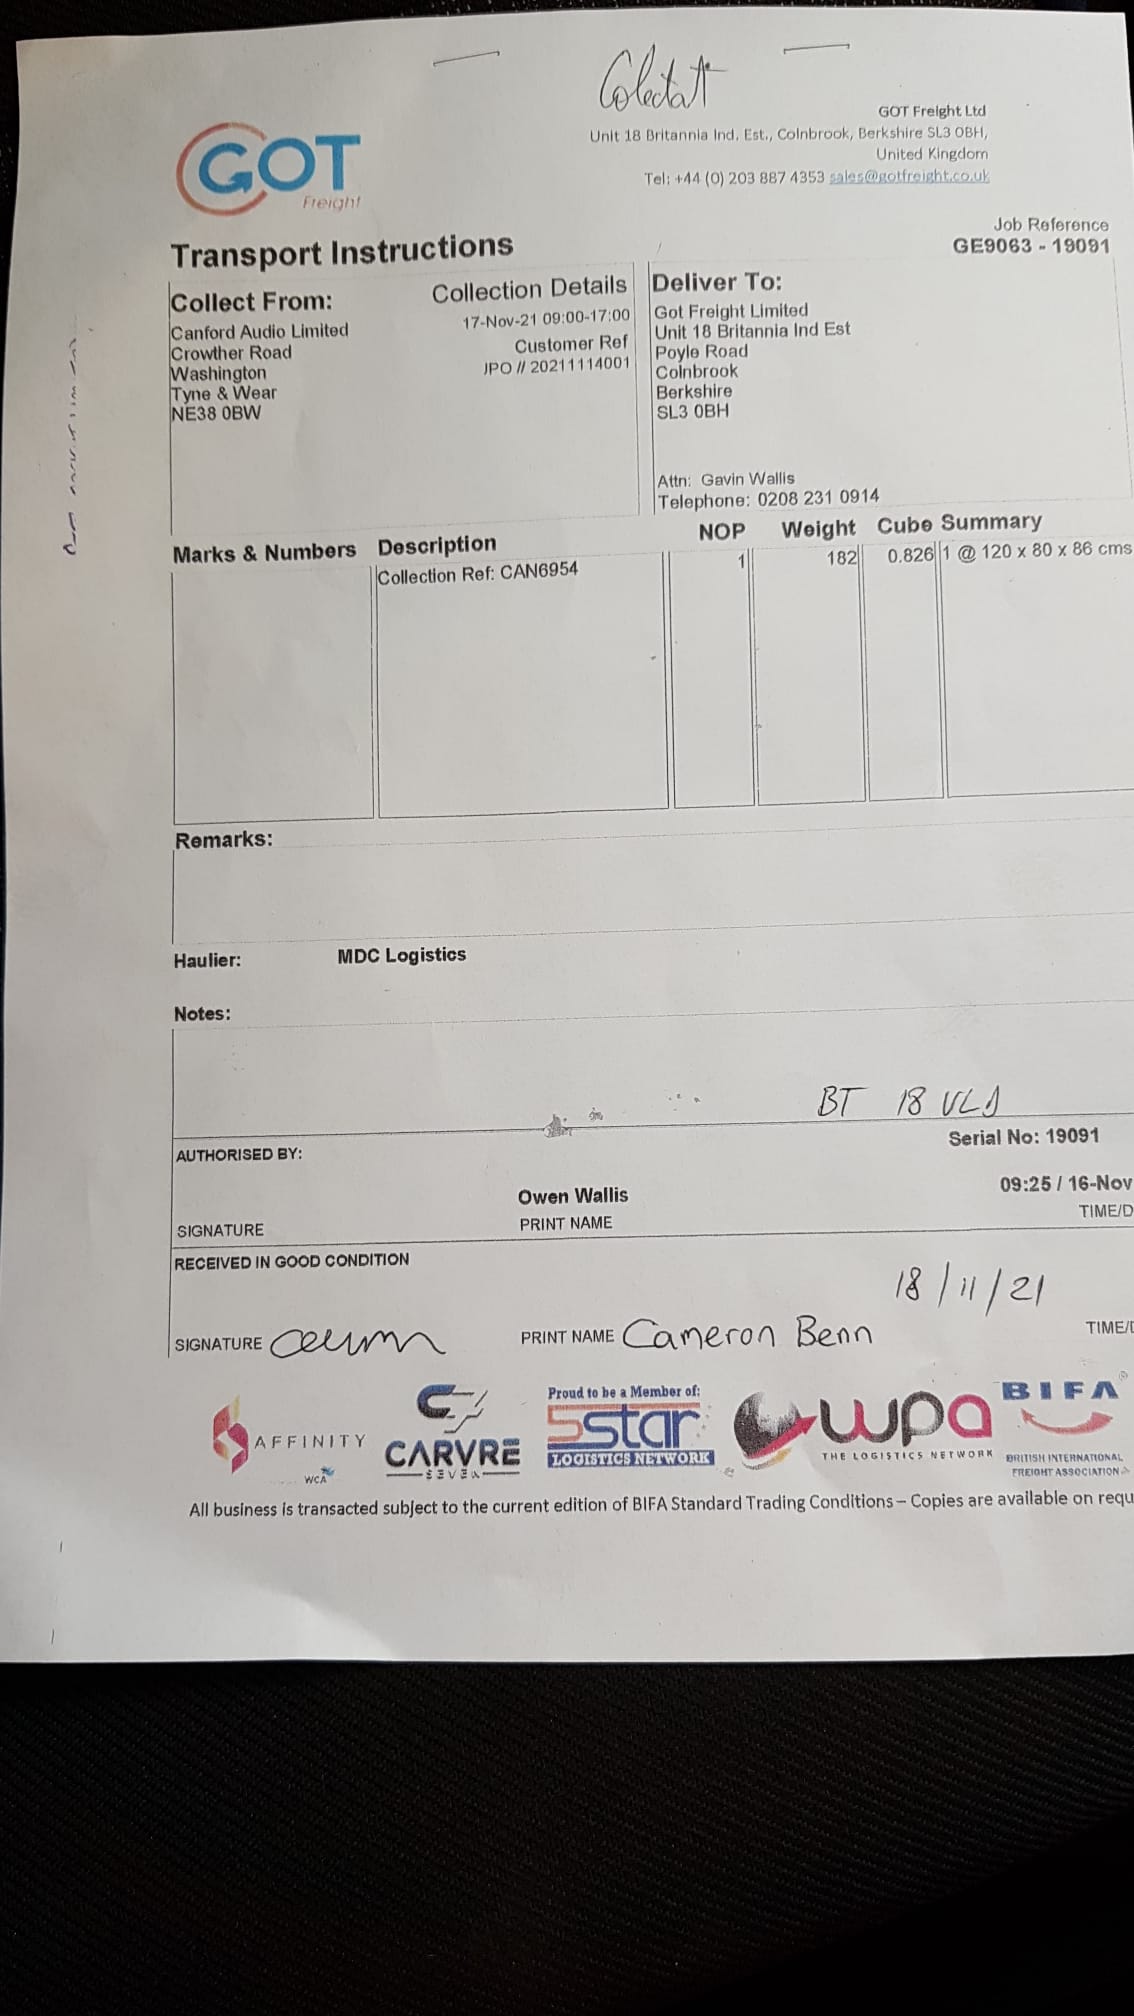 Colectat
GOT Freight Ltd
Unit 18 Britannia Ind. Est., Colnbrook, Berkshire SL3 0BH,
United Kingdom
Tel: +44 (0) 203 887 4353 sales@gotfreight.co.uk
GOT
Freight
Job Reference
GE9063 - 19091
Transport Instructions
Collect From:
Canford Audio Limited
Crowther Road
Washington
Tyne & Wear
NE38 0BW
Collection Details
17-Nov-21 09:00-17:00
Customer Ref
JPO // 20211114001
Deliver To:
Got Freight Limited
Unit 18 Britannia Ind Est
Poyle Road
Colnbrook
Berkshire
SL3 0BH
Attn: Gavin Wallis
Telephone: 0208 231 0914
Marks & Numbers Description NOP Weight Cube Summary
Collection Ref: CAN6954 1 182 0.826 1 @ 120 x 80 x 86 cms
Remarks:
Haulier: MDC Logistics
Notes:
BT 18 VLJ
Serial No: 19091
AUTHORISED BY:
Owen Wallis 09:25 / 16-Nov
SIGNATURE PRINT NAME TIME/D
RECEIVED IN GOOD CONDITION
18/11/21
SIGNATURE PRINT NAME Cameron Benn TIME/D
AFFINITY
WCA
CARVRE
SEVEN
Proud to be a Member of:
5star
LOGISTICS NETWORK
wpa
THE LOGISTICS NETWORK
BIFA
BRITISH INTERNATIONAL
FREIGHT ASSOCIATION
All business is transacted subject to the current edition of BIFA Standard Trading Conditions – Copies are available on requ